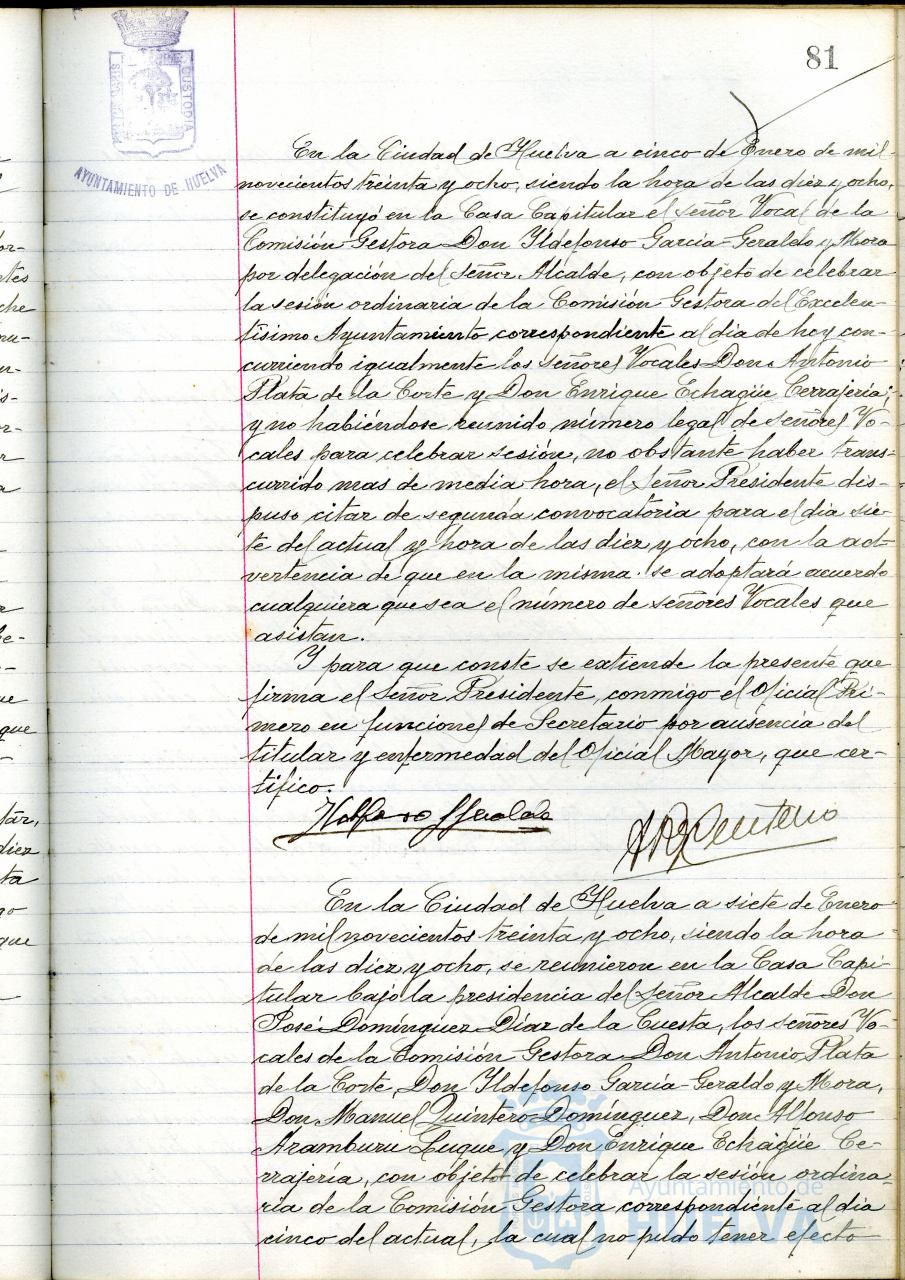 81
CUSTODIA
AYUNTAMIENTO DE HUELVA
En la Ciudad de Huelva a cinco de Enero de mil
novecientos treinta y ocho, siendo la hora de las diez y ocho,
se constituyó en la Casa Capitular el señor Vocal de la
Comisión Gestora Don Yldefonso García-Geraldo y Mora
por delegación del señor Alcalde, con objeto de celebrar
la sesión ordinaria de la Comisión Gestora del Excelen-
tísimo Ayuntamiento correspondiente al día de hoy con-
curriendo igualmente los señores Vocales Don Antonio
Plata de la Corte y Don Enrique Echagüe Cerrajería;
y no habiéndose reunido número legal de señores Vo-
cales para celebrar sesión, no obstante haber trans-
currido mas de media hora, el Señor Presidente dis-
puso citar de segunda convocatoria para el día sie-
te del actual y hora de las diez y ocho, con la ad-
vertencia de que en la misma se adoptará acuerdo
cualquiera que sea el número de señores Vocales que
asistan.
Y para que conste se extiende la presente que
firma el Señor Presidente, conmigo el Oficial Pri-
mero en funciones de Secretario por ausencia del
titular y enfermedad del Oficial Mayor, que cer-
tifico.
En la Ciudad de Huelva a siete de Enero
de mil novecientos treinta y ocho, siendo la hora
de las diez y ocho, se reunieron en la Casa Capi-
tular bajo la presidencia del Señor Alcalde Don
José Domínguez Díaz de la Cuesta, los señores Vo-
cales de la Comisión Gestora Don Antonio Plata
de la Corte, Don Yldefonso García-Geraldo y Mora,
Don Manuel Quintero Domínguez, Don Alfonso
Aramburu Luque y Don Enrique Echagüe Ce-
rrajería, con objeto de celebrar la sesión ordina-
ria de la Comisión Gestora correspondiente al día
cinco del actual, la cual no pudo tener efecto
Ayuntamiento de
HUELVA